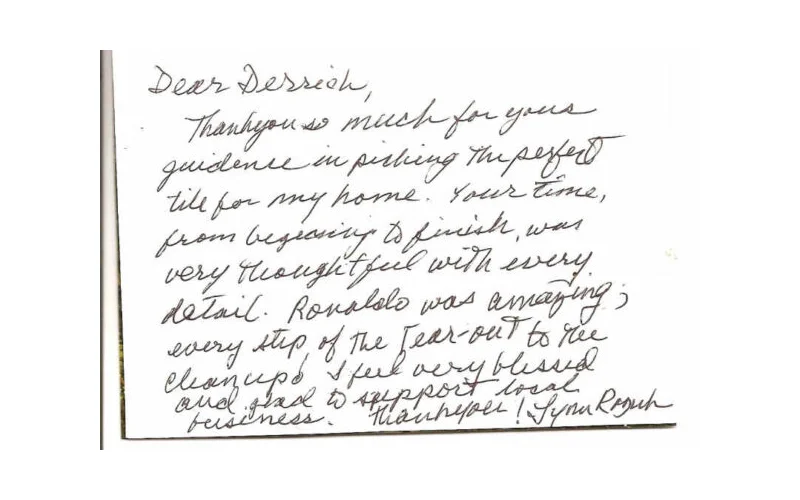 Dear Derrick,
Thankyou so much for your
guidence in picking the perfect
tile for my home. Your time,
from begining to finish, was
very thoughtful with every
detail. Ronaldo was amazing;
every step of the tear-out to the
cleanup! I feel very blessed
and glad to support local
business. Thankyou! Lynn